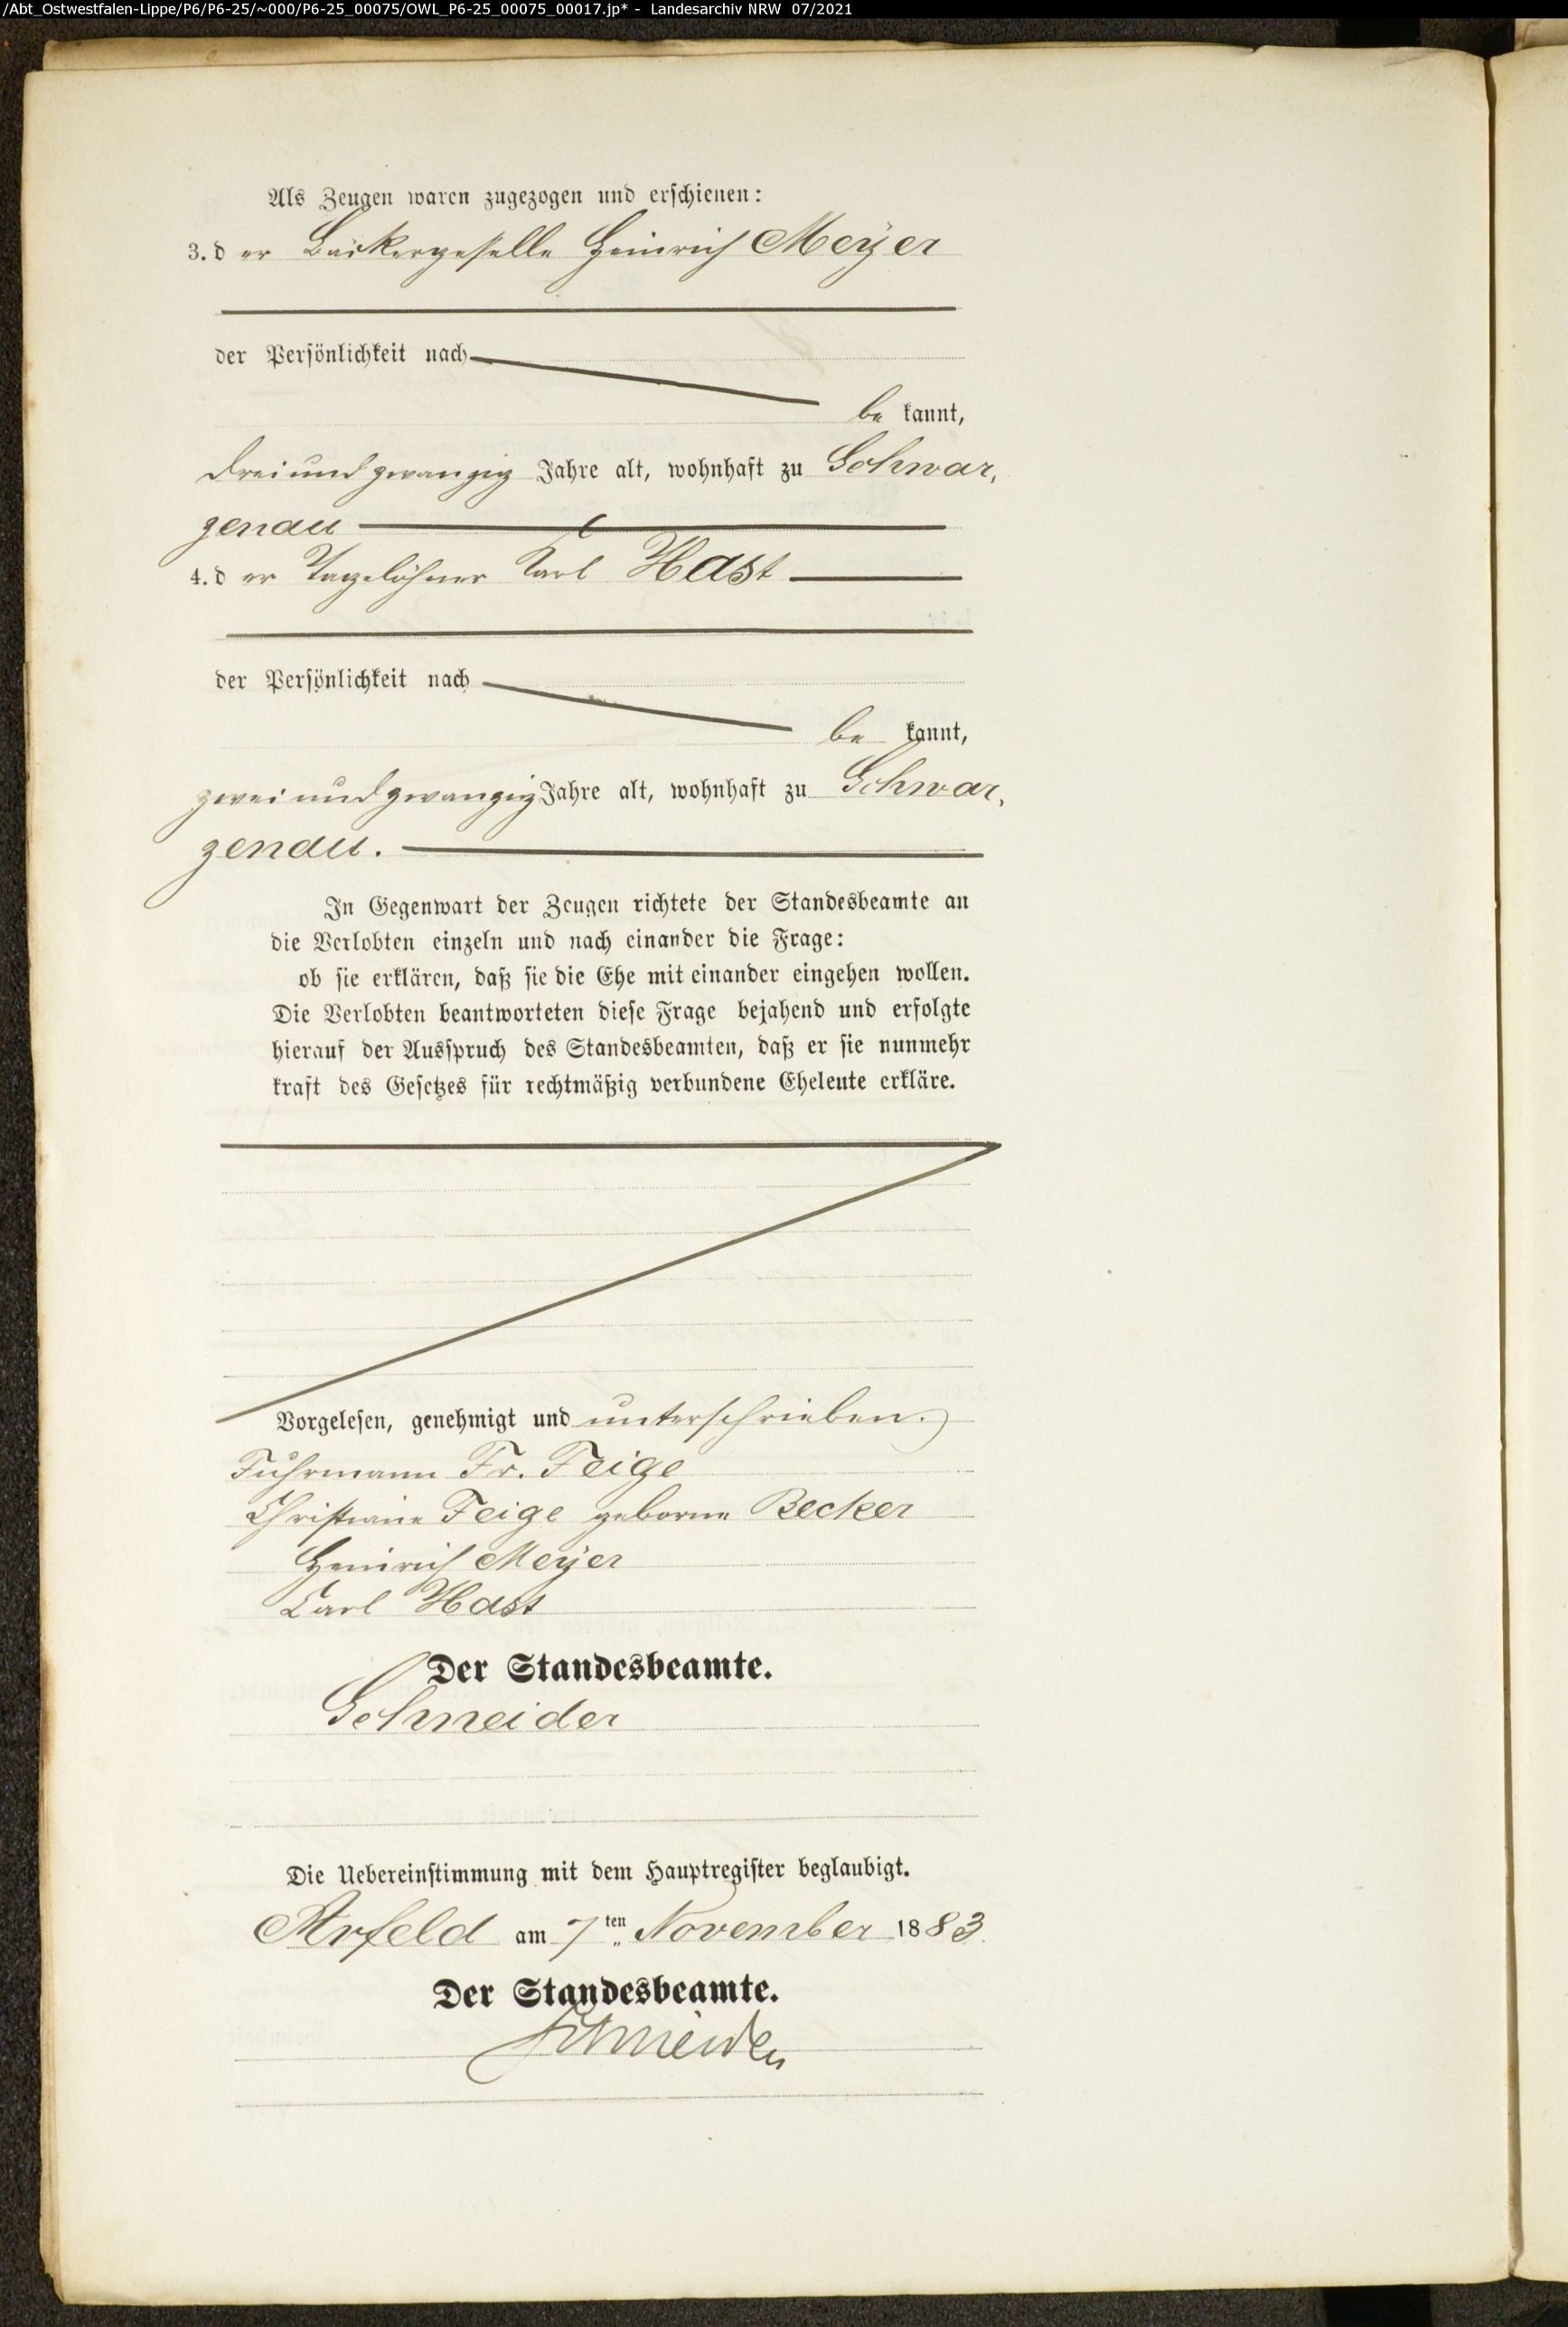 /Abt_Ostwestfalen-Lippe/P6/P6-25/~000/P6-25_00075/OWL_P6-25_00075_00017.jp* - Landesarchiv NRW 07/2021
Als Zeugen waren zugezogen und erschienen:
3. d er Bäckergeselle Heinrich Meyer
der Persönlichkeit nach
be kannt,
dreiundzwanzig Jahre alt, wohnhaft zu Schwar,
zenau
4. d er Tagelöhner Karl Hast
der Persönlichkeit nach
be kannt,
zweiundzwanzig Jahre alt, wohnhaft zu Schwar,
zenau.
In Gegenwart der Zeugen richtete der Standesbeamte an
die Verlobten einzeln und nach einander die Frage:
ob sie erklären, daß sie die Ehe mit einander eingehen wollen.
Die Verlobten beantworteten diese Frage bejahend und erfolgte
hierauf der Ausspruch des Standesbeamten, daß er sie nunmehr
kraft des Gesetzes für rechtmäßig verbundene Eheleute erkläre.
Vorgelesen, genehmigt und unterschrieben.
Fuhrmann Fr. Feige
Christiane Feige geborne Becker
Heinrich Meyer
Carl Hast
Der Standesbeamte.
Schneider
Die Uebereinstimmung mit dem Hauptregister beglaubigt.
Arfeld am 7ten November 1883.
Der Standesbeamte.
Schneider